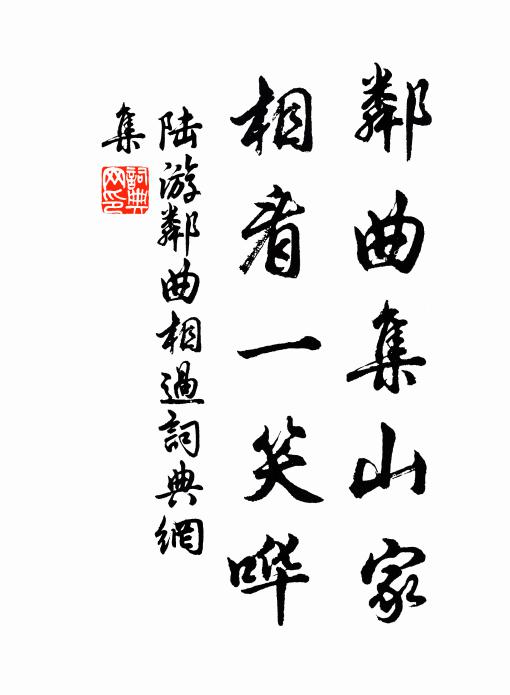 鄰曲集山家
相看一笑哗
陸游鄰曲相過詞典網
集
詞典
网印